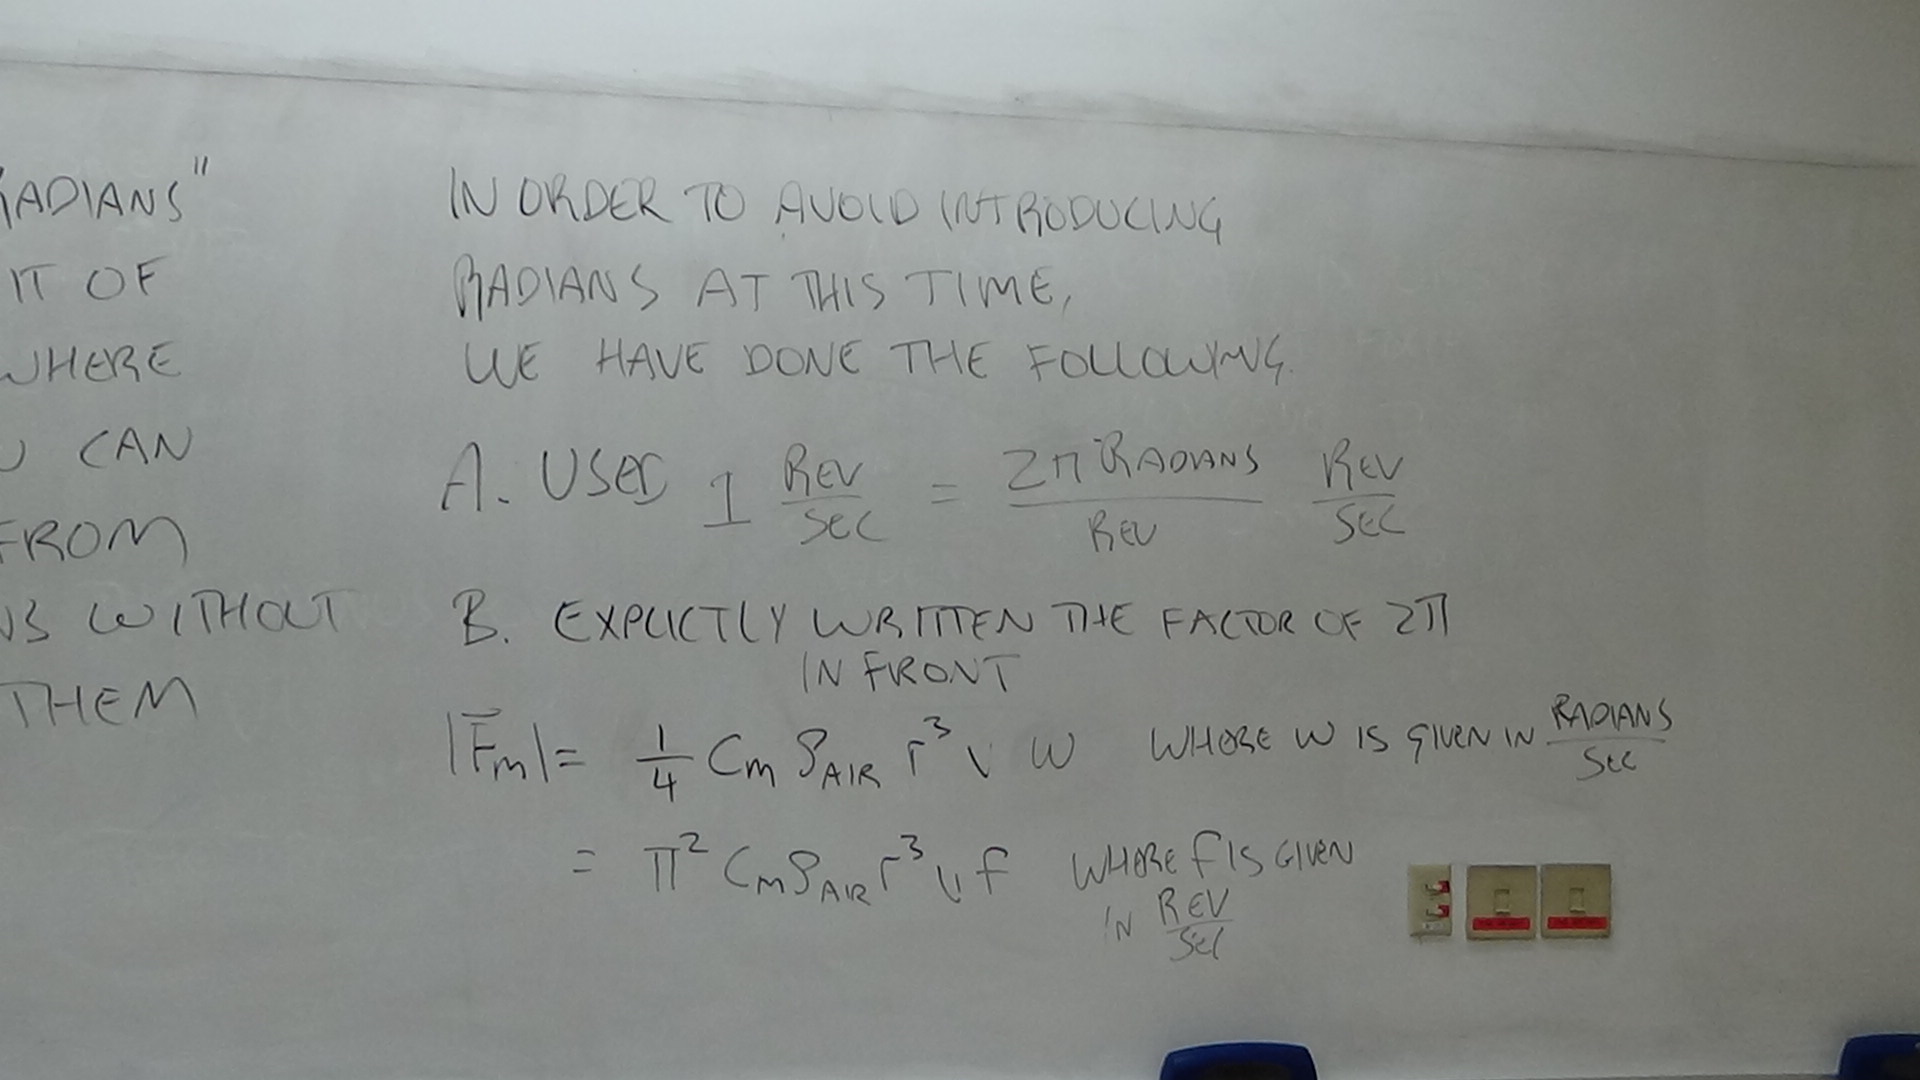 RADIANS"
IT OF
WHERE
U CAN
FROM
NS WITHOUT
THEM
IN ORDER TO AVOID INTRODUCING
RADIANS AT THIS TIME,
WE HAVE DONE THE FOLLOWING.
A. USED 1 REV/SEC = 2π RADIANS/REV REV/SEC
B. EXPLICTLY WRITTEN THE FACTOR OF 2π
IN FRONT
|F⃗m| = 1/4 Cm ρAIR r³ v ω WHERE ω IS GIVEN IN RADIANS/SEC
= π² Cm ρAIR r³ v f WHERE f IS GIVEN
IN REV/SEC